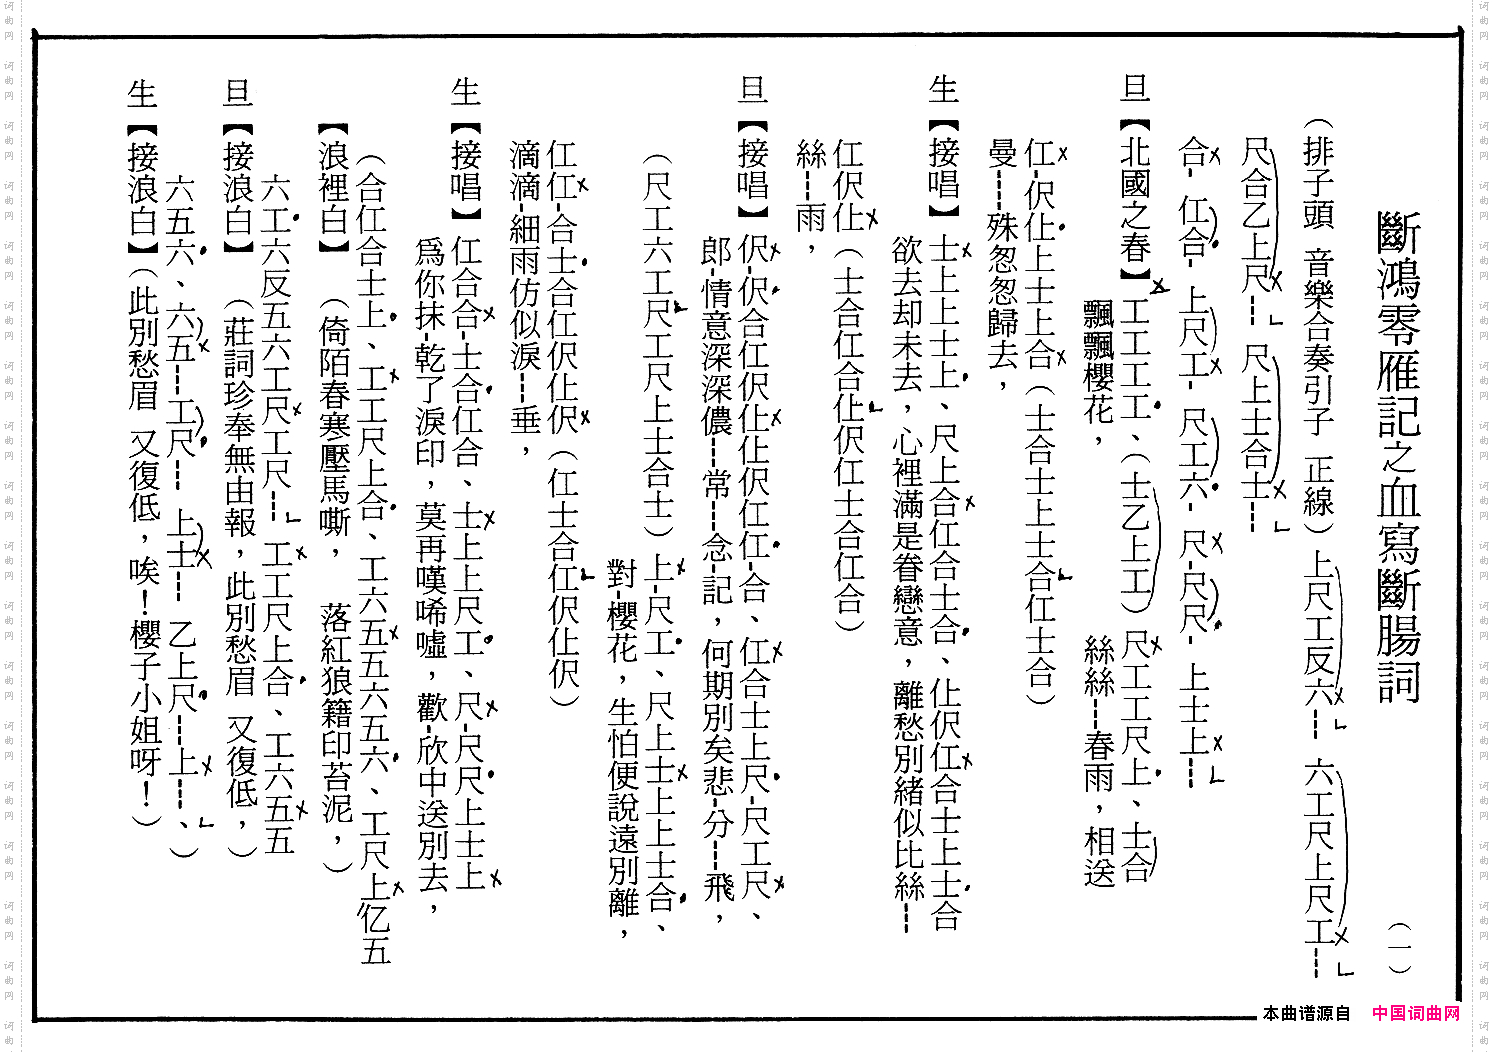 斷鴻零雁記之血寫斷腸詞 （一）
（排子頭 音樂合奏引子 正線）上尺工反六┅ 六工尺上尺工┅
尺合乙上尺┅ 尺上士合士┅
合-仜合-上尺工-尺工六-尺-尺尺-上士上┅
旦【北國之春】工工工工、（士乙上工）尺工工尺上、士合
飄飄櫻花， 絲絲┅春雨，相送
仜-伬仩上士上合（士合士上士合仜士合）
曼┅殊忽忽歸去，
生【接唱】士上上士上、尺上合仜合士合、仩伬仜合士上士合
欲去却未去，心裡滿是眷戀意，離愁別緒似比絲┅
仜伬仩（士合仜合仩伬仜士合仜合）
絲┅雨，
旦【接唱】伬-伬合仜伬仩仩伬仜仜-合、仜合士上尺-尺工尺、
郎-情意深深儂┅常┅念-記，何期別矣悲-分┅飛，
（尺工六工尺工尺上士合士）上-尺工、尺上士上上士合、
對-櫻花，生怕便說遠別離，
生【接唱】仜合合-士合仜合、士上上尺工、尺-尺尺上士上
爲你抹-乾了淚印，莫再嘆唏噓，歡-欣中送別去，
仜仜-合士合仜伬仩伬（仜士合仜伬仩伬）
滴滴-細雨仿似淚┅垂，
（合仜合士上、工工尺上合、工六五五六五六、工尺上亿五
【浪裡白】（倚陌春寒壓馬嘶， 落紅狼籍印苔泥，）
六工六反五六工尺工尺┅ 工工尺上合、工六五五
旦【接浪白】（莊詞珍奉無由報，此別愁眉 又復低，）
六五六、六五┅工尺┅ 上士┅ 乙上尺┅上┅、）
生【接浪白】（此別愁眉 又復低，唉！櫻子小姐呀！）
本曲谱源自 中国词曲网